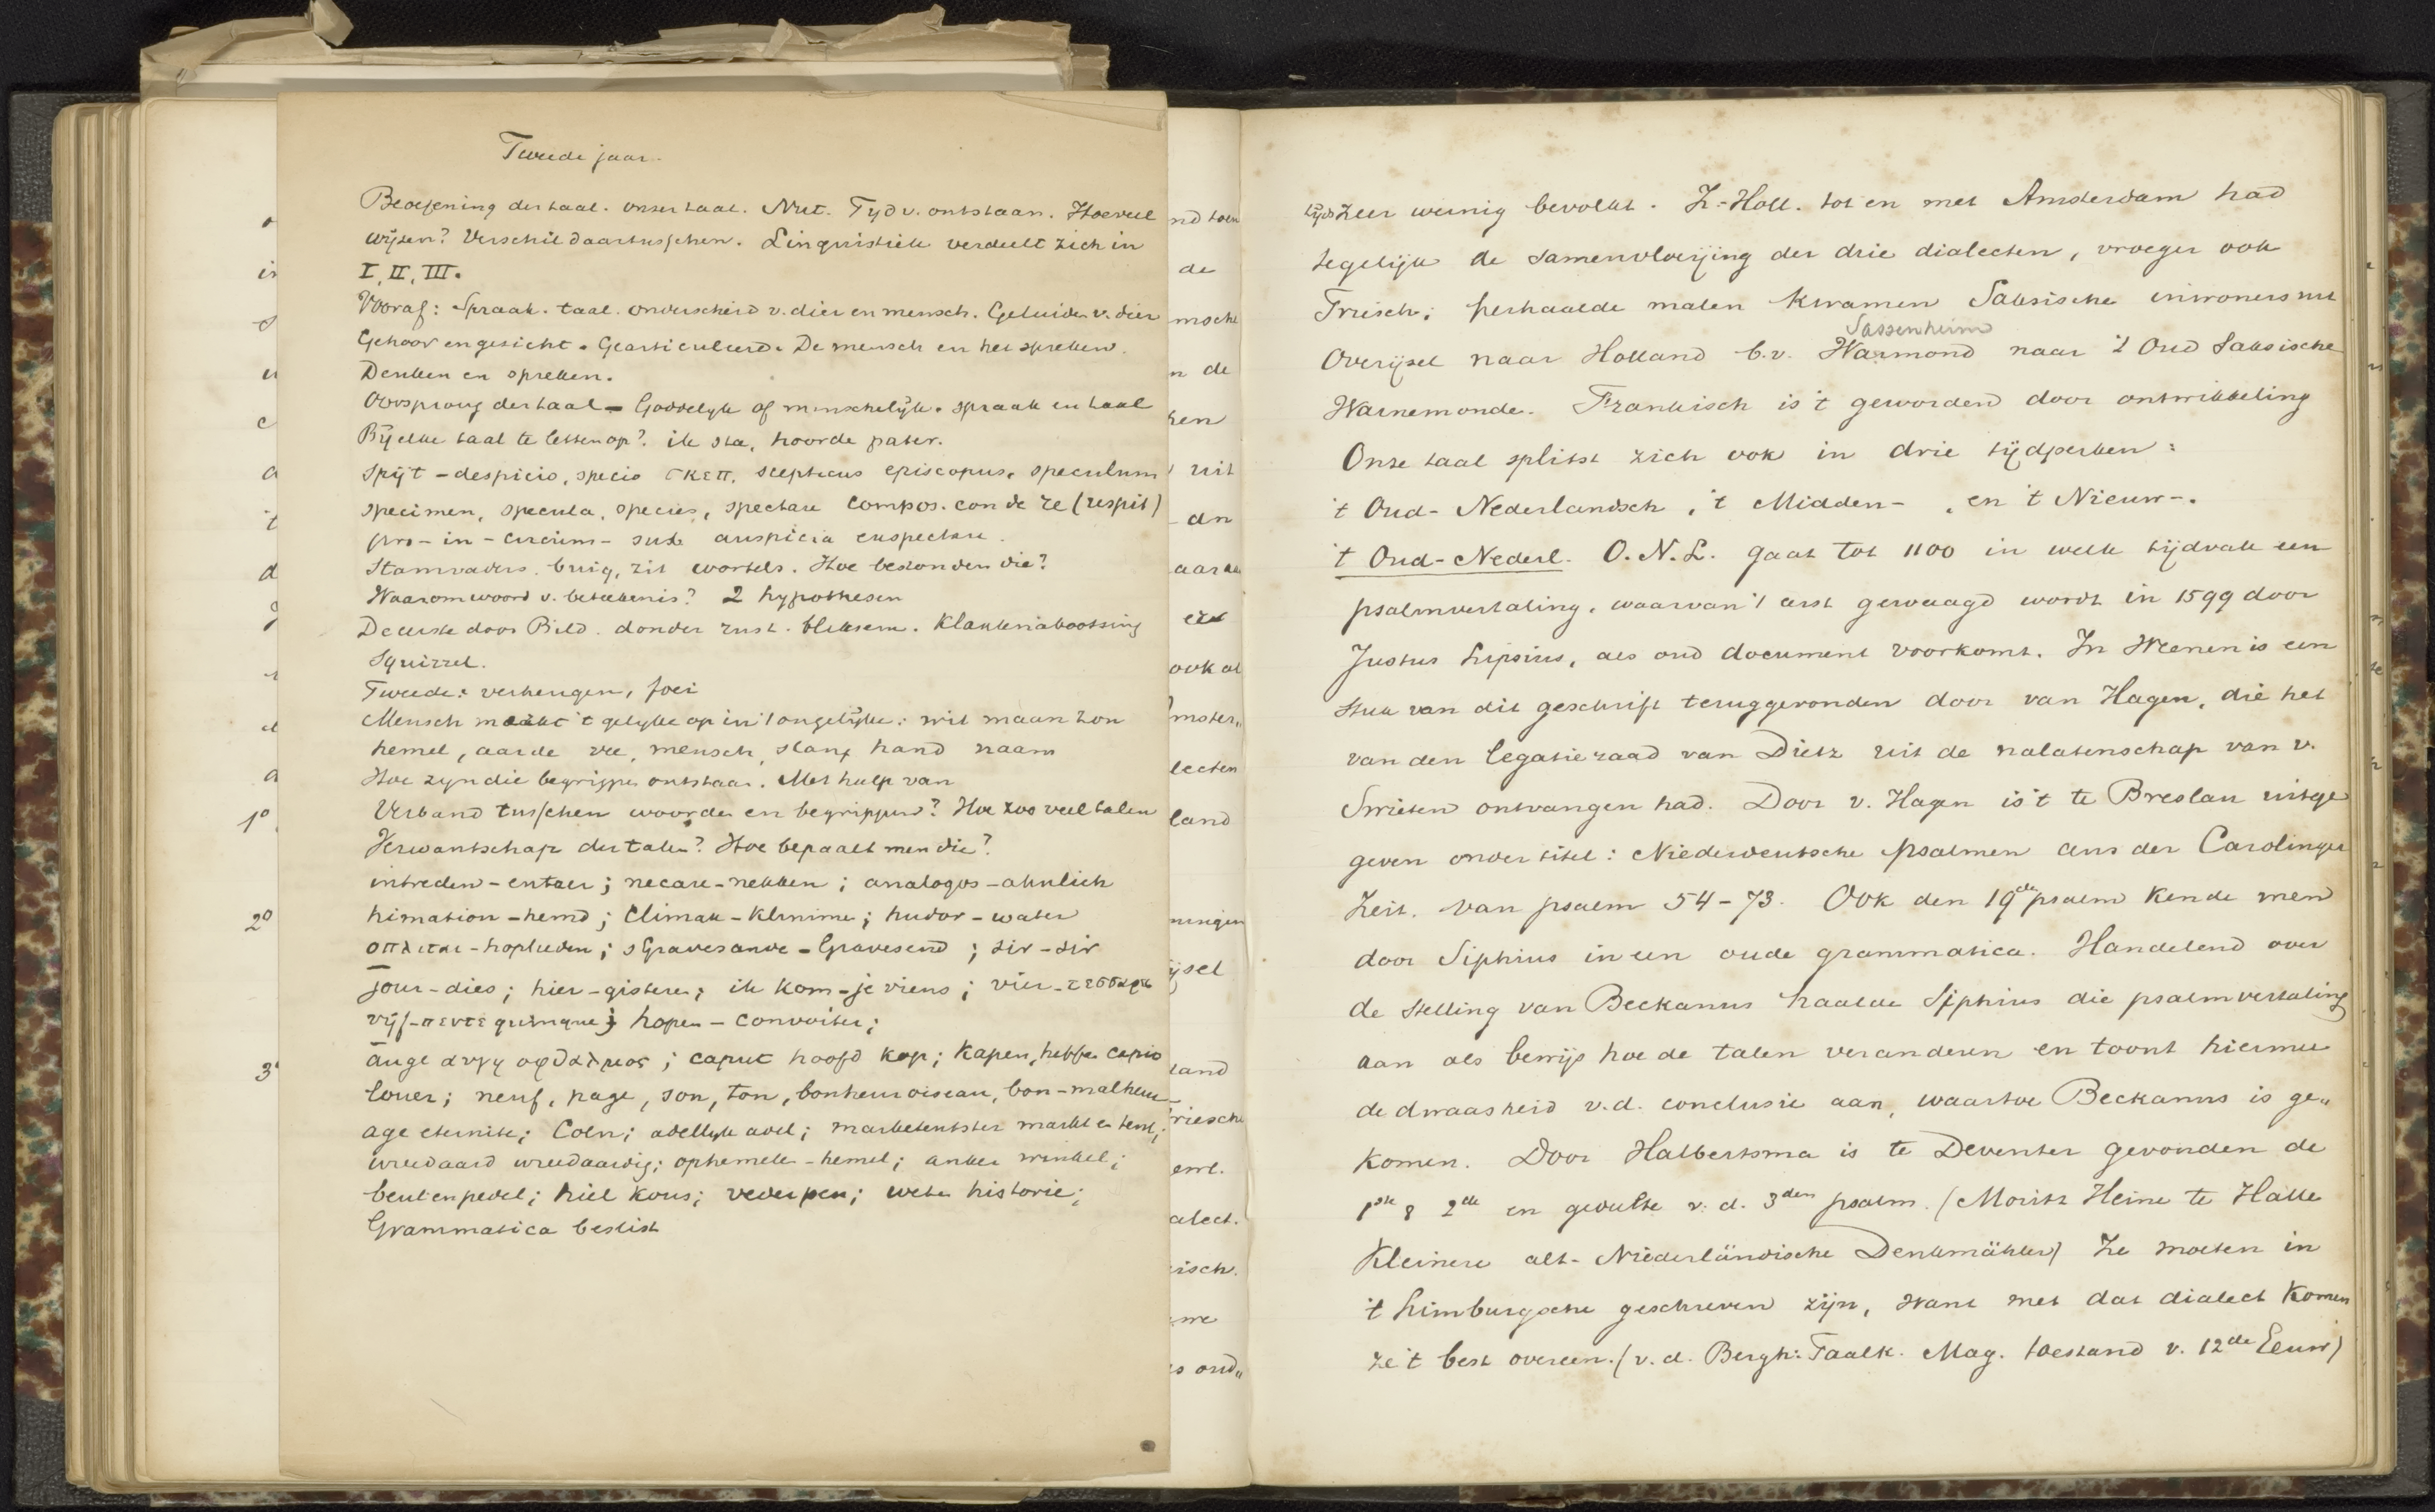 Tweede jaar.
Beoefening der taal. onzer taal. Nut. Tyd v. ontstaan. Hoeveel
wijzen? Verschil daartusschen. Linguistiek verdeelt zich in
I, II, III.
Vooraf: Spraak. taal. onderscheid v. dier en mensch. Geluiden v. dier
Gehoor en gezicht. Gearticuleerd. De mensch en het spreken.
Denken en spreken.
Oorsprong der taal - Goddelyk of menschelijk. spraak en taal
Bij elke taal te letten op? ik sta, hoorde pater.
spijt - despicio, specio σκεπ. scepticus episcopus. speculum
specimen, specula, species, spectare compos. con de re (respit)
pro - in - circum - sub auspicia
Stamvaders. buig, zit wortels. Hoe bestonden die?
Waarom woord v. beteekenis? 2 hypothesen
De eerste door Bild. donder rust. bliksem. Klanknabootsing
Squirrel.
Tweede: verheugen, foei
Mensch maakt 't gelyke op in 't ongelijke: wit maan zon
hemel, aarde vee, mensch, slang hand naam
Hoe zyn die begrippen ontstaan. Met hulp van
Verband tusschen woorden en begrippen? Hoe zoo veel talen
Verwantschap der talen? Hoe bepaalt men die?
intreden - entrer; necare - nekken; analogos - ähnlich
himation - hemd; climax - klimmen; hudor - water
οπλιται - hoplieden; sGravesande - Gravesend; sir - sir
jour - dies; hier - gisteren; ik kom - je viens; vier - τεσσαρες
vijf - πεντε quinque; hopen - convoiter;
auge αυγη οφθαλμος; caput hoofd kop; kapen, hebben capio
louer; neuf, page, son, ton, bonheur oiseau, bon - malheur
age eternité; Coln; adellyk adel; marketentster markt en tent;
wreedaard wreedaardig; ophemelen - hemel; anker winkel;
beul en pedel; hiel kous; veder pen; weten historie;
Grammatica beslist
1º
2º
3º
nd toen
de
msche
n de
ken
uit
dn
ook al
lecten
land
ningen
ijsel
land
riesche
alect.
isch.
tijds zeer weinig bevolkt. Z.-Holl. tot en met Amsterdam had
tegelijk de samenvloeijing der drie dialecten, vroeger ook
Friesch; herhaalde malen kwamen Saksische inwoners uit
Sassenheim
Overijsel naar Holland b.v. Warmond naar 't Oud Saksische
Warnemonde. Frankisch is 't geworden door ontwikkeling
Onze taal splitst zich ook in drie tijdperken:
't Oud-Nederlandsch, 't Midden-, en 't Nieuw-.
't Oud-Nederl. O.N.L. gaat tot 1100 in welk tijdvak een
psalmvertaling, waarvan 't eerst gewaagd wordt in 1599 door
Justus Lipsius, als oud document voorkomt. In Weenen is een
stuk van dit geschrift teruggevonden door van Hagen, die het
van den legatieraad van Dietz uit de nalatenschap van v.
Swieten ontvangen had. Door v. Hagen is 't te Breslau uitge
geven onder titel: Niederdeutsche psalmen aus der Carolinger
Zeit. van psalm 54-73. Ook den 19den psalm kende men
door Siphius in een oude grammatica. Handelend over
de stelling van Beckanus haalde Siphius die psalmvertaling
aan als bewijs hoe de talen veranderen en toont hiermee
de dwaasheid v.d. conclusie aan, waartoe Beckanus is ge„
komen. Door Halbertsma is te Deventer gevonden de
1ste & 2de en gedeelte v.d. 3den psalm. (Moritz Heine te Halle
Kleinere alt-Niederländische Denkmähler) Ze moeten in
't Limburgsche geschreven zijn, want met dat dialect komen
ze 't best overeen. (v.d. Bergh: Taalk. Mag. toestand v. 12de Eeuw)